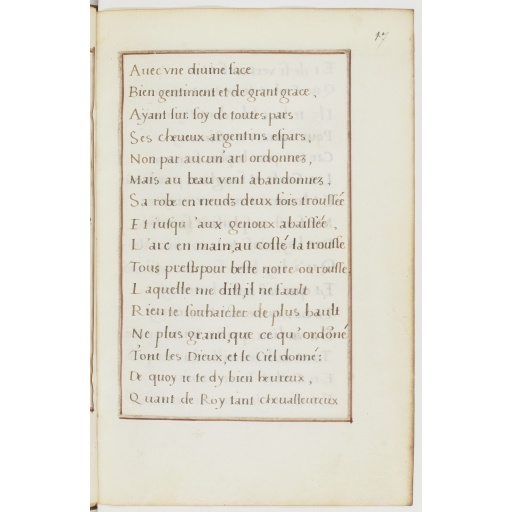 17
Auec vne diuine face
Bien gentiment et de grant grace,
Ayant sur soy de toutes pars
Ses cheueux argentins espars,
Non par aucun' art ordonnez,
Mais au beau vent abandonnez,
Sa robe en neudz deux fois troussée
Et iusqu' aux genoux abaissée,
L'arc en main, au costé la trousse
Tous prests pour beste noire ou rousse.
Laquelle me dist, il ne fault
Rien te souhaicter de plus hault
Ne plus grand, que ce qu'ordóné
T'ont les Dieux, et le Ciel donné:
De quoy ie te dy bien heureux,
Quant de Roy tant cheualleureux